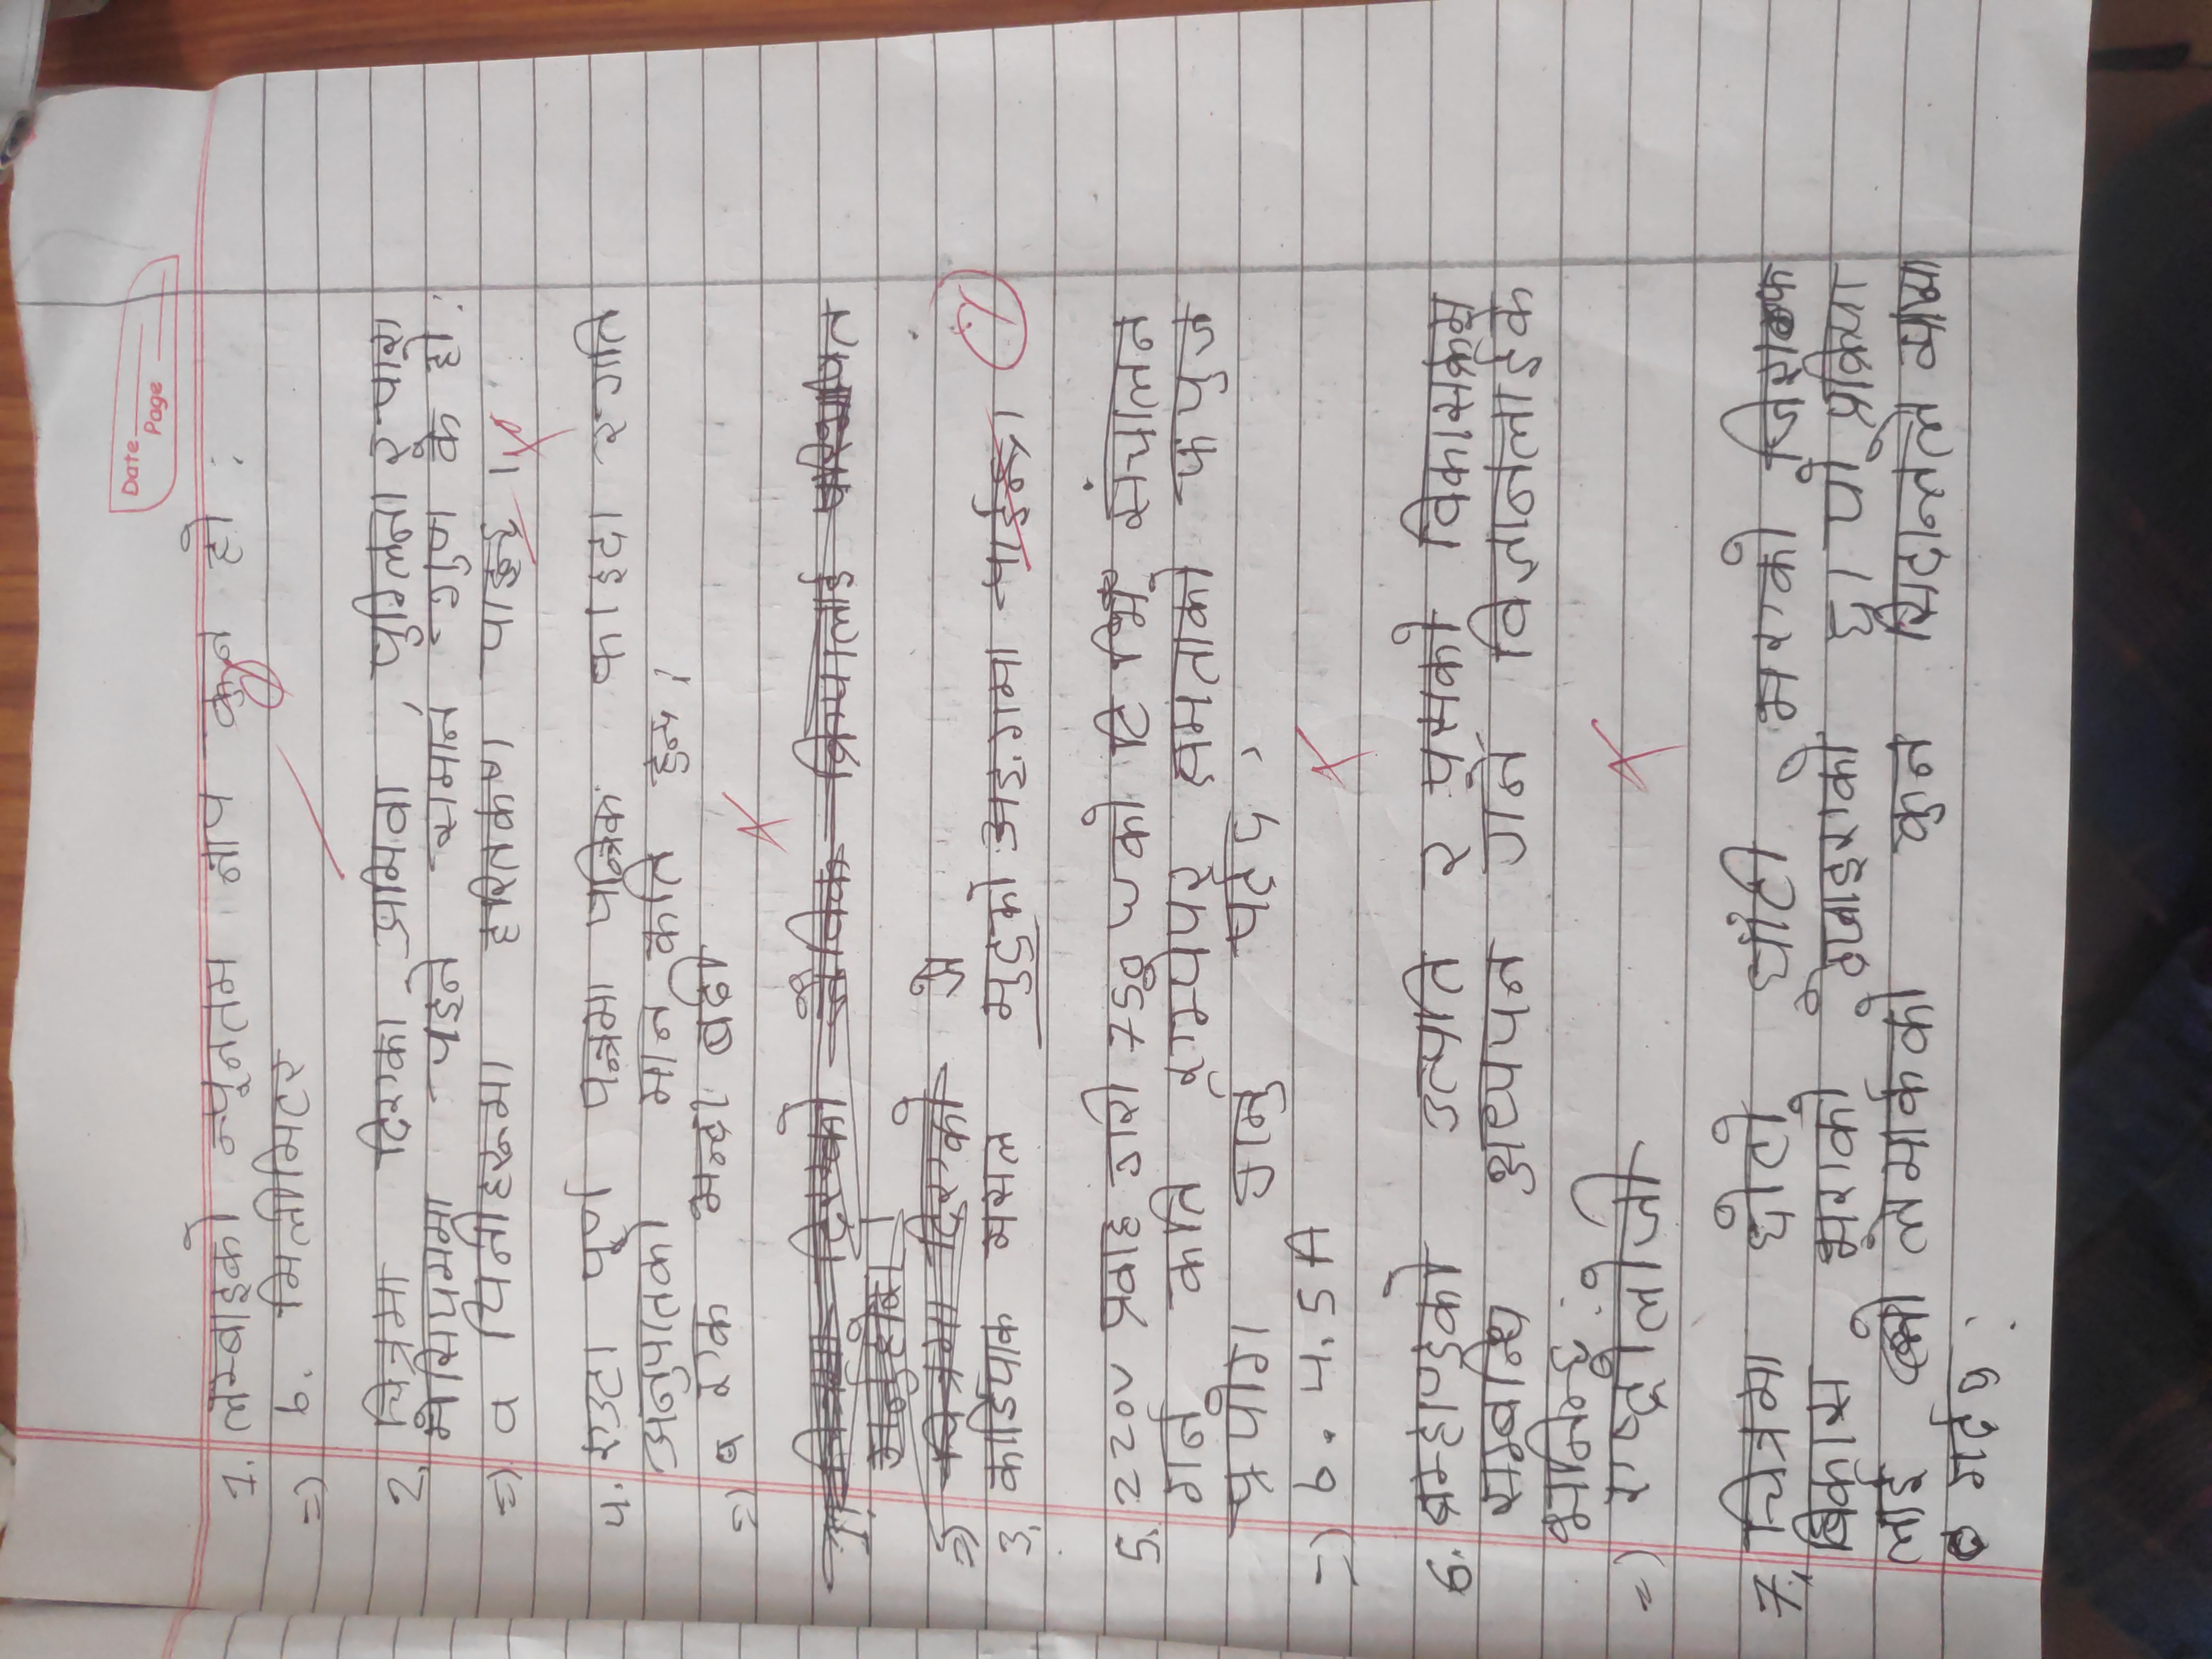 Date
Page
1. लम्बाइको न्यूनतम नाप कुन हो :
=) b. मिलीमिटर
2. चित्रमा दिएका अमिवा , युग्लिना र पारा
मेसियममा पइने समान गुण के हो :
=) a यिनीहरूमा हरितकण पाइन्छ ।
4. एउटा पूर्ण यन्त्रमा यान्त्रिक फाइदा र गति
अनुपातको मान कति हुन्छ ।
=) एक भन्दा बढी
चित्रमा दिएको जैविक क्रियालाई परिभाषित
गर्नुहोस ।
=) चित्रमा दिएको
3. कार्डियाक मसल मुटुको अङ्गमा पाईन्छ।
5. 220V प्रवाह गरी 750 W को टि भि संचालन
गर्न कति एम्पेयर क्षमताको फयुज
प्रयोग गर्नु पर्दछ ,
=) b. 4.5A
6. ब्रम्हाण्डको उत्पति र यसको विकासक्रम
सम्बन्धि अध्ययन गर्ने विज्ञानलाईके
भनिन्छ :
=) एष्ट्रोलोजी
7. चित्रमा छोटो घाँटी भएको जिराफ
बिकास भएको देखाइएको छ। यो प्रक्रिया
लाई लेमार्कको कुन सिदान्तले
गर्दछ :